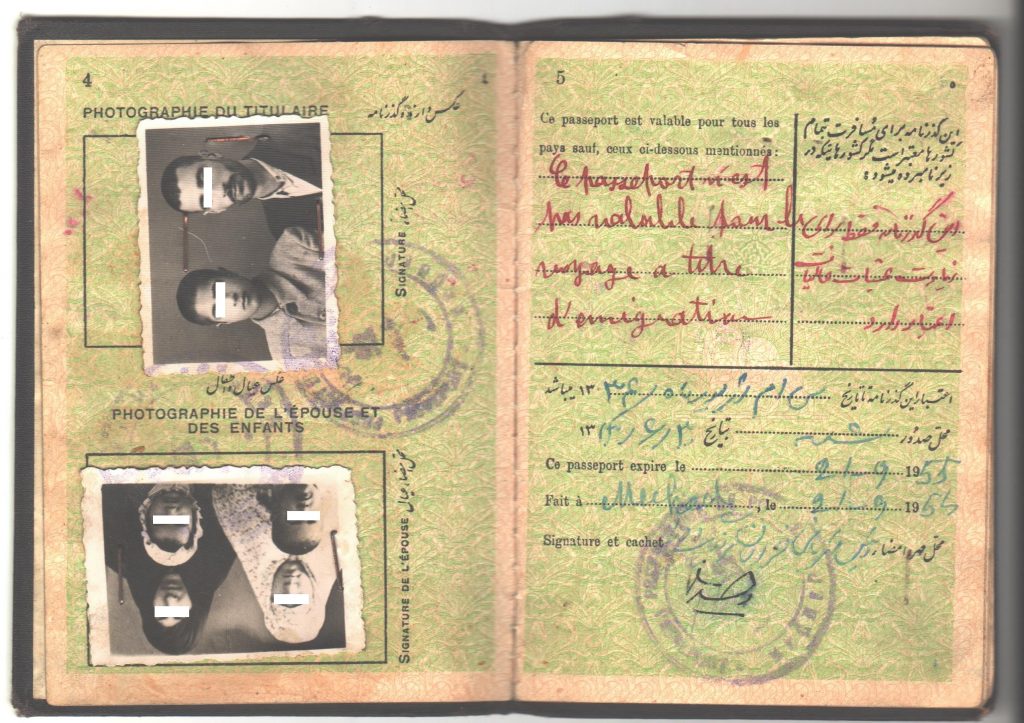 4
PHOTOGRAPHIE DU TITULAIRE
عکس دارنده گذرنامه
SIGNATURE محل امضاء
عکس عیال و اطفال
PHOTOGRAPHIE DE L'ÉPOUSE ET
DES ENFANTS
SIGNATURE DE L'ÉPOUSE محل امضاء عیال
5
۵
Ce passeport est valable pour tous les
pays sauf, ceux ci-dessous mentionnés:
Ce passeport n'est
pas valable pour le
voyage a titre
d'emigration
این گذرنامه برای مسافرت بتمام
کشورها معتبر است مگر کشورهائیکه در
زیر نامبرده میشود:
این گذرنامه فقط برای
زیارت عتبات عالیات
اعتبار دارد
اعتبار این گذرنامه تا تاریخ ۱۳ میباشد
محل صدور بتاریخ ۱۳
Ce passeport expire le 21-9 1955
Fait à Meched, le 21-9 1954
Signature et cachet محل مهر و امضاء